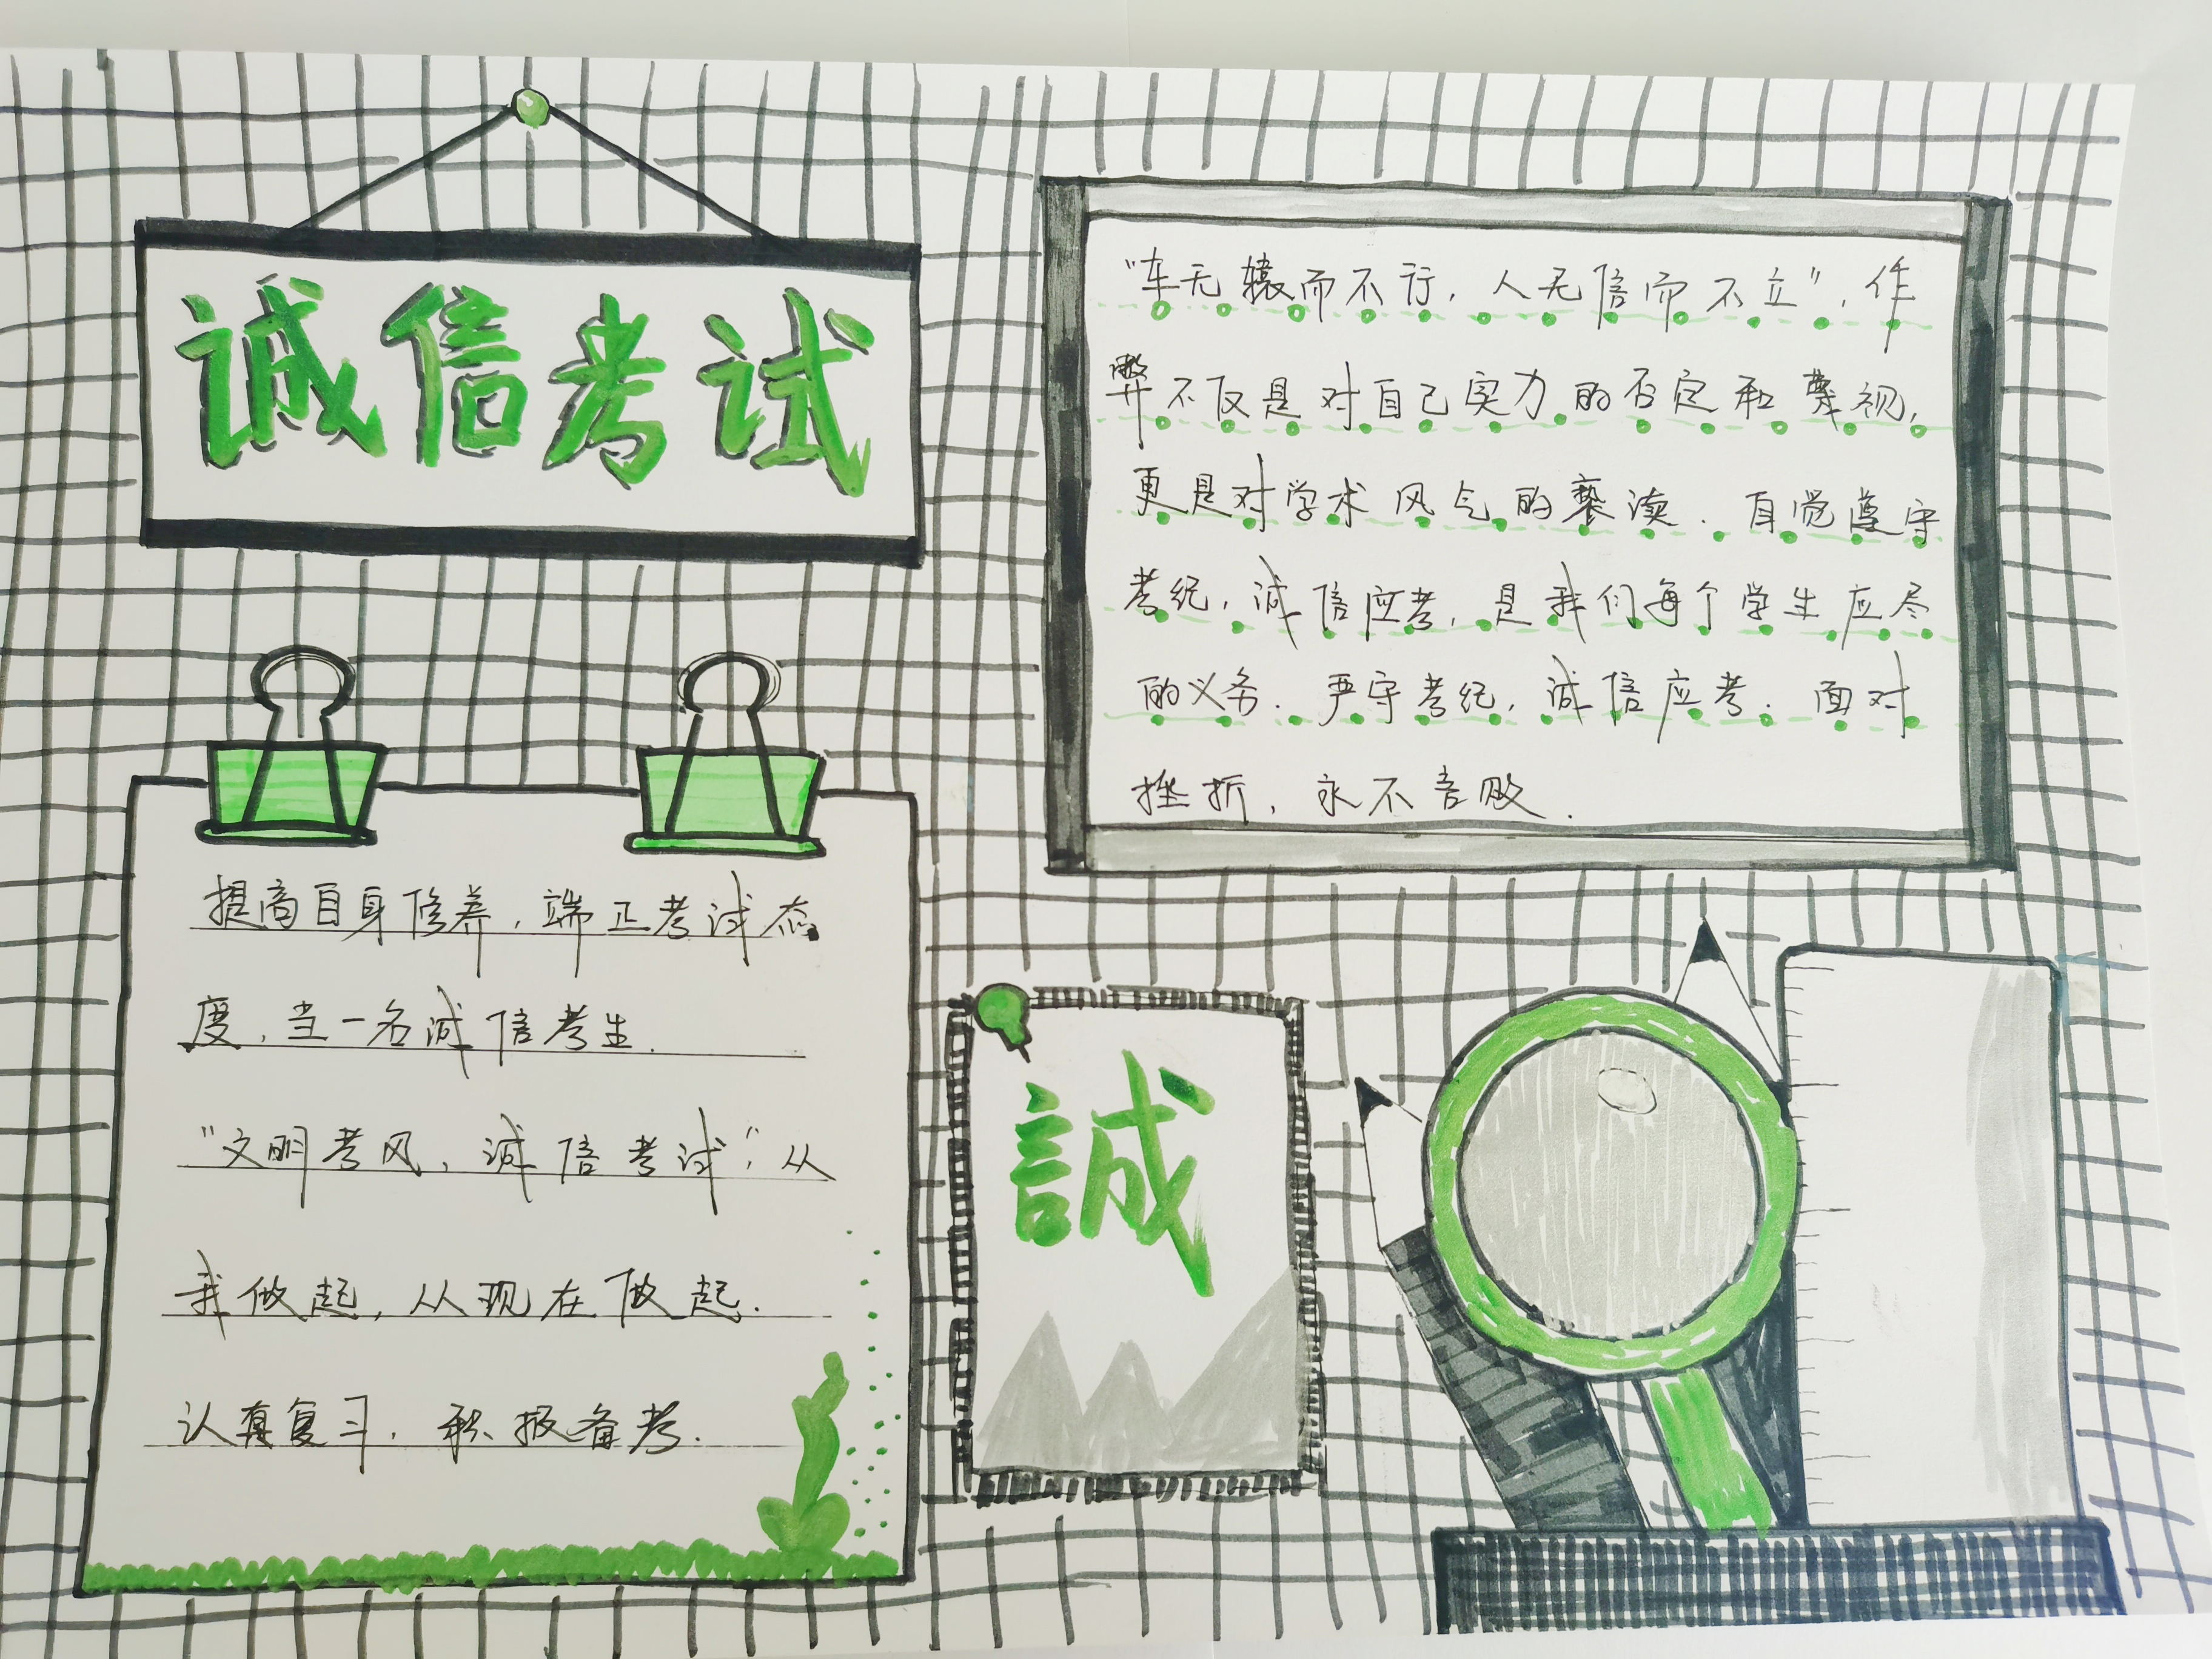 诚信考试
"车无辕而不行，人无信而不立"，作
弊不仅是对自己实力的否定和蔑视，
更是对学术风气的亵渎．自觉遵守
考纪，诚信应考，是我们每个学生应尽
的义务．严守考纪，诚信应考．面对
挫折，永不言败．
提高自身修养，端正考试态
度，当一名诚信考生．
"文明考风，诚信考试"，从
我做起，从现在做起．
认真复习，积极备考．
誠